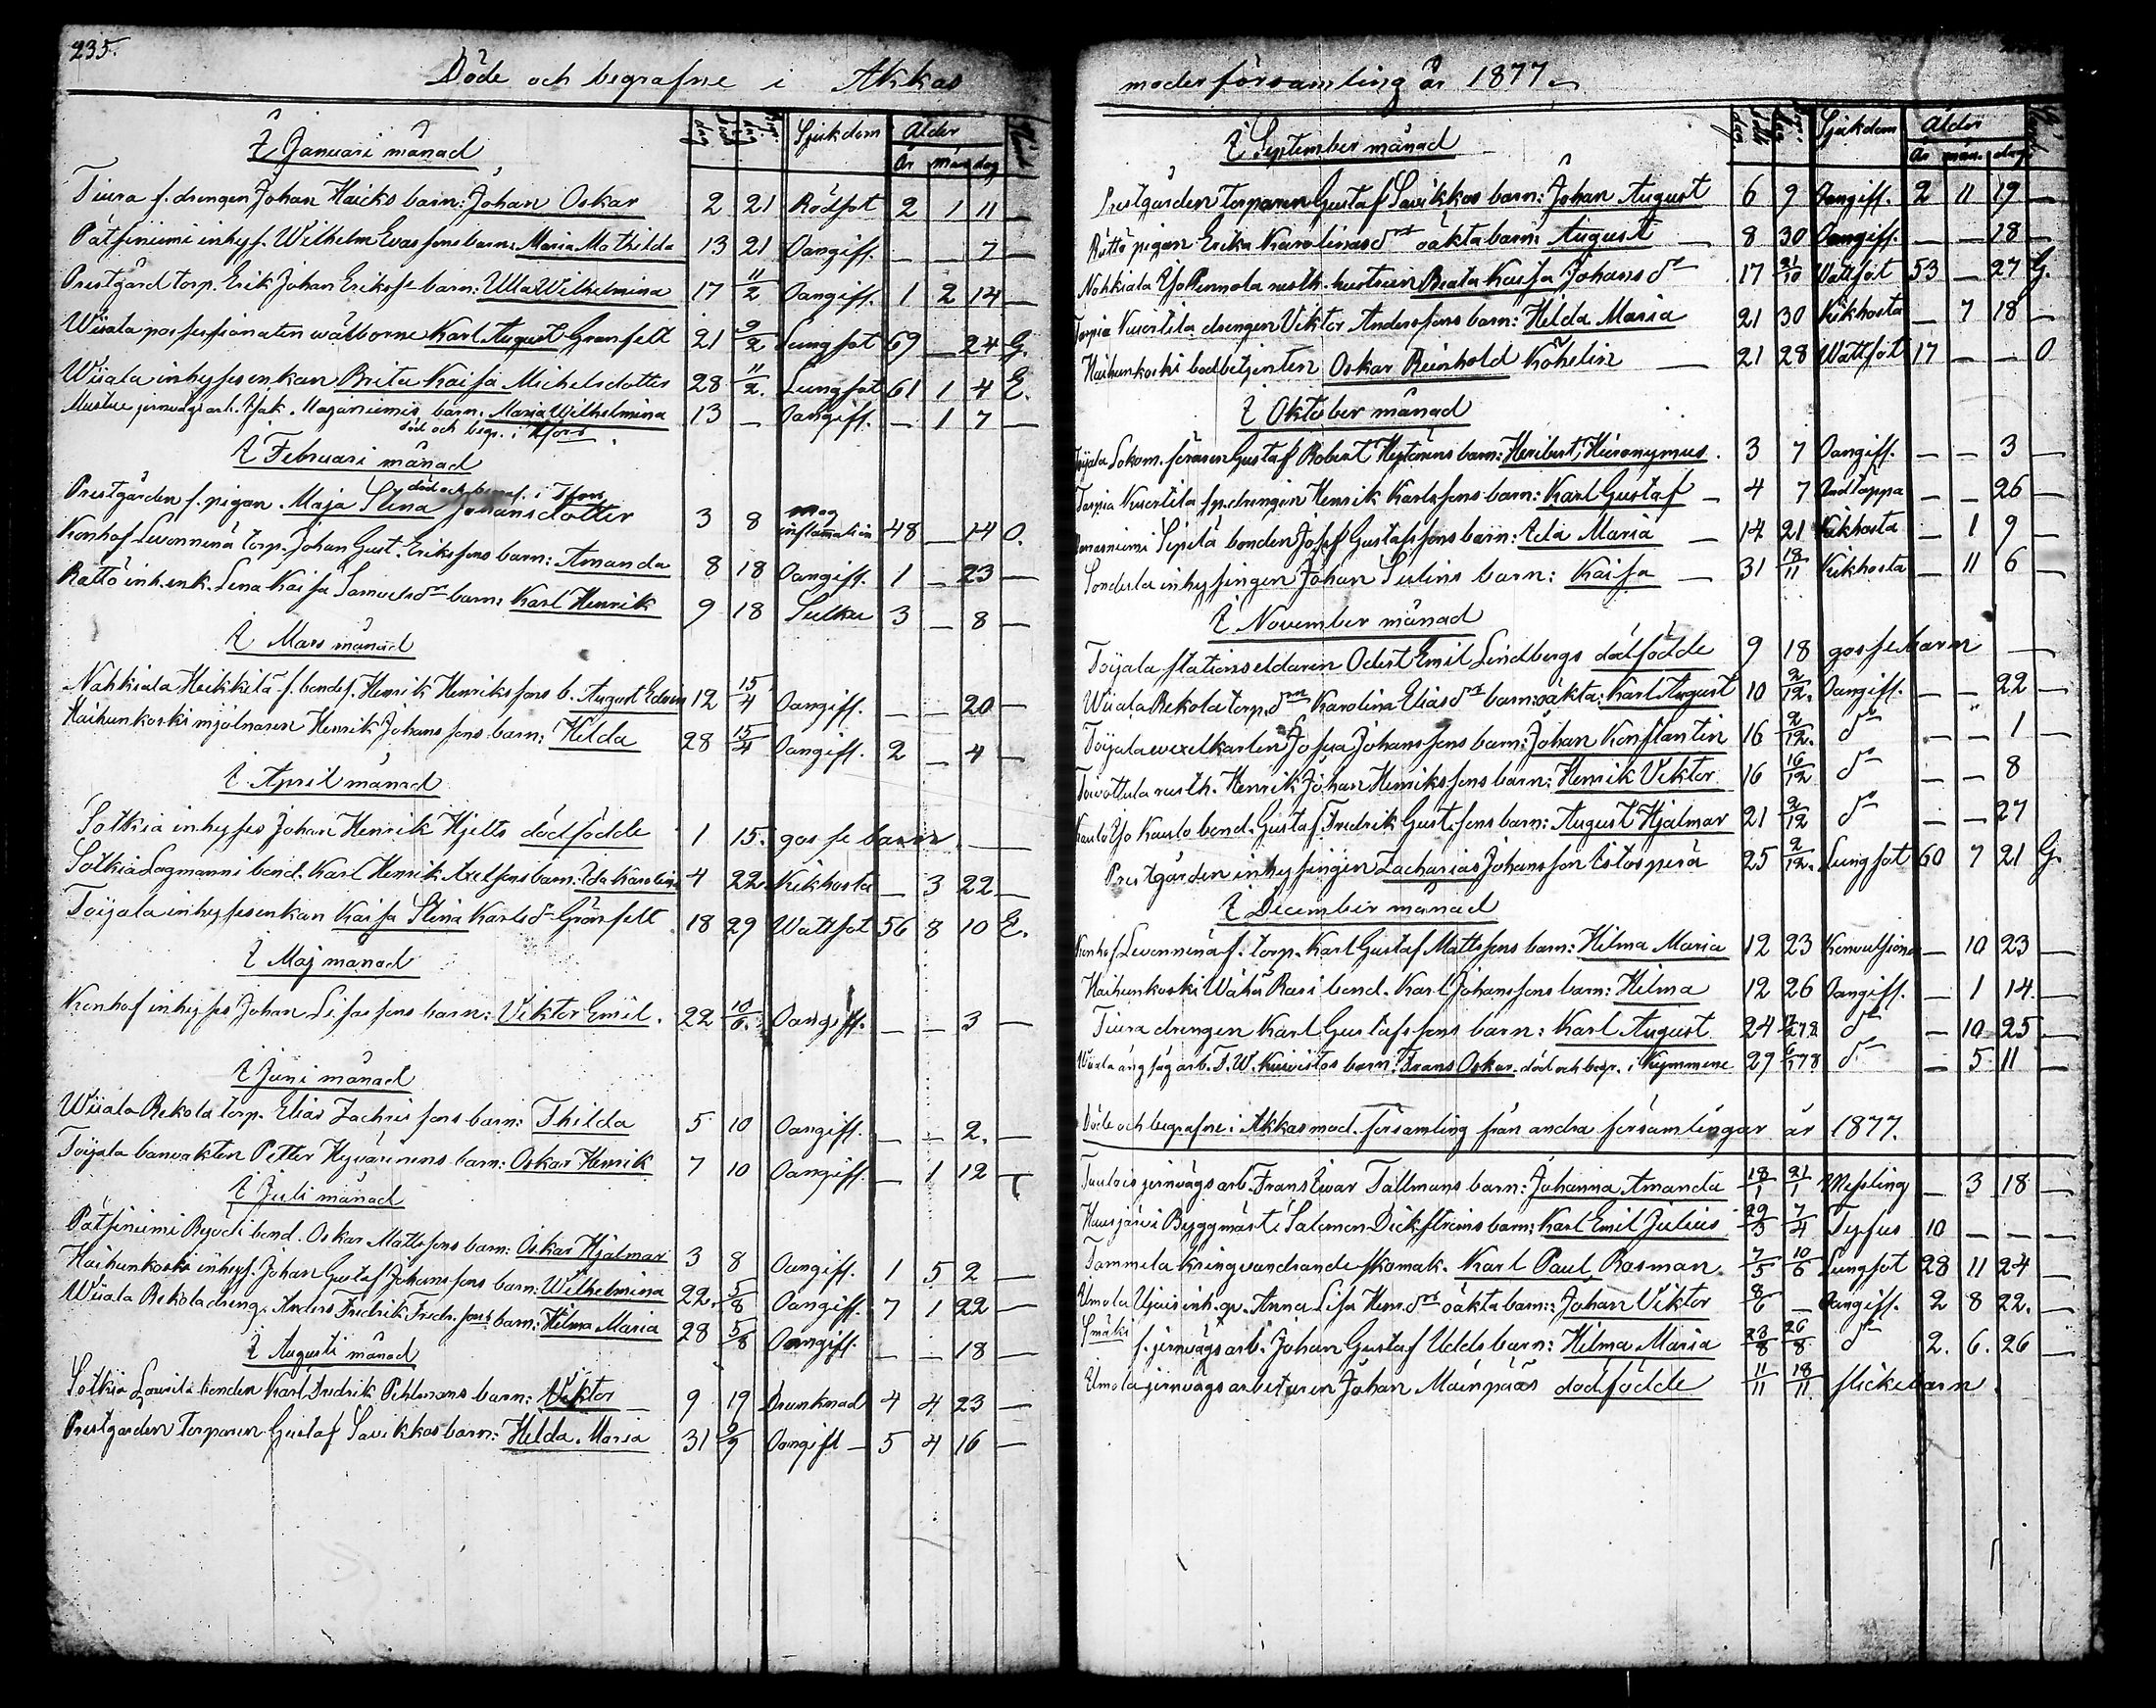 235.
Döde och begrafne i Akkas
Sjukdom Ålder
år mån dag
I Januari månad
Tiura f. drengen Johan Haicks barn: Johan Oskar 2 21 Rödsot 2 1 11 —
Pätsiniemi inhys. Wilhelm Evassons barn: Maria Mathilda 13 21 Oangiff. — — 7 —
Prestgård torp. Erik Johan Erikss barn: Ulla Wilhelmina 17 11/2 Oangiff. 1 2 14 —
Wiiala possessionaten wälborne Karl August Granfelt 21 9/2 Lungsot 69 — 24 G.
Wiiala inhyses enkan Brita Kaisa Michelsdotter 28 11/2. Lungsot 61 1 4 E.
jernvägs arb. barn. Maria Wilhelmina 13 — Oangiff. — 1 7 —
död och begr. i Hfors
I Februari månad
död och begraf. i Hfors
Prestgården f. pigan. Maja Stina Johansdotter 3 8 mag inflammation 48 — 14 O.
Konhof Levonnenä torp. Johan Gust. Erikssons barn: Amanda 8 18 Oangiff. 1 — 23 —
Rättö inh. enk. Lena Kaisa Samuelsdr barn: Karl Henrik 9 18 Sulku 3 — 8 —
I Mars månad
Nahkiala Heikkilä f. bondes. Henrik Henrikssons b. August Edvin 12 15/4 Oangiff. — — 20 —
Haihunkoski mjölnaren Henrik Johanssons barn: Hilda 28 15/4 Oangiff. 2 — 4 —
I April månad
Sotkia inhyses Johan Henrik Hjelts dödfödde 1 15. gosse barn. —
Sotkia Lagmanni bond. Karl Henrik Axelssons barn: Ida Karolina 4 22 Kikhosta — 3 22 —
Toijala inhyses enkan Kaisa Stina Karlsdr Grönfelt 18 29 Wattsot 56 8 10 E.
I Maj månad
Konhof inhyses Johan Lisassons barn: Viktor Emil. 22 10/6. Oangiff. — — 3 —
I Juni månad
Wiiala Rekola torp. Elias Zachrissons barn: Thilda 5 10 Oangiff. — — 2. —
Toijala banvakten Petter Hyvärinens barn: Oskar Henrik 7 10 Oangiff. — 1 12 —
I Juli månad
Pätsiniemi bond. Oskar Mattssons barn: Oskar Hjalmar 3 8 Oangiff. 1 5 2 —
Haihunkoski inhys. Johan Gustaf Johanssons barn: Wilhelmina 22. 5/8 Oangiff. 7 1 22 —
Wiiala Rekola dreng. Anders Fredrik Fredr. sons barn: Hilma Maria 28 5/8 Oangiff. — — 18 —
I Augusti månad
Sotkia Laurila bonden Karl Fredrik Pehlmans barn: Viktor — 9 19 Drunknad 4 4 23 —
Prestgården Torparen Gustaf Savikkos barn: Hilda Maria 31 9/9 Oangift — 5 4 16 —
moderförsamling år 1877
Sjukdom Ålder
år mån. dag
I September månad
Prestgården Torparen Gustaf Savikkos barn: Johan August 6 9 Oangiff. 2 11 19 —
Rättö pigan Erika Karolinasdr oäkta barn: August — 8 30 Oangiff. — — 18 —
Nahkiala Yso Pennola rusth. hustrun Beata Kaisa Johansdr 17 21/10 Wattsot 53 — 27 G.
Tarpia Nuortila drengen Viktor Anderssons barn: Hilda Maria 21 30 Kikhosta — 7 18 —
Haihunkoski bodbetjenten Oskar Reinhold Köhelin — 21 28 Wattsot 17 — — O
I Oktober månad
Toijala Lokom. föraren Gustaf Robert barn: Heribert, Hieronymus. 3 7 Oangiff. — — 3 —
Tarpia Nuortila sp. drengen Henrik Karlssons barn: Karl Gustaf — 4 7 Andtäppa — — 26 —
Sipilä bonden Josef Gustafssons barn: Ida Maria — 14 21 Kikhosta — 1 9 —
Sondula inhysingen Johan Sulins barn: Kaisa — 31 18/11 Kikhosta — 11 6 —
I November månad
Toijala stationseldaren Odert Emil Lindbergs dödfödde 9 18 gosse barn —
Wiiala Rekola torp. dr Karolina Eliasdr barn: oäkta: Karl August 10 2/12. Oangiff. — — 22 —
Toijala wexelkarlen Josua Johanssons barn: Johan Konstantin 16 2/12. do — — 1 —
Tavottula rusth. Henrik Johan Henrikssons barn: Henrik Viktor 16 16/12 do — — 8
Kaulo Yso Kaulo bond. Gustaf Fredrik Gust. sons barn: August Hjalmar 21 2/12 do — — 27
Prestgården inhysingen Zacharias Johansson Estosperä 25 2/12. Lungsot 60 7 21 G.
I December månad
Konhof Levonnenä f. torp. Karl Gustaf Mattssons barn: Hilma Maria 12 23 Konvulsioner — 10 23 —
Haihunkoski Wähä Rasi bond. Karl Johanssons barn: Hilma 12 26 Oangiff. — 1 14. —
Tiura drengen Karl Gustafssons barn: Karl August 24 78 do — 10 25 —
Wiiala ångsåg arb. F. W. Kuivistos barn: Frans Oskar. död och begr. i Kymmene 27 78 do — 5 11 —
Döde och begrafne i Akkas mod. församling från andra församlingar år 1877.
Tuulois jernvägs arb. Frans Iwar Tallmans barn: Johanna Amanda 18/1 21/1 Messling — 3 18 —
Hausjärvi Byggmäst. Salomon Dickströms barn: Karl Emil Julius 29/3 7/4 Tyfus 10 — — —
Tammela kringvandrande skomak. Karl Paul Rosman. 7/5 10/6 Lungsot 28 11 24 —
Urdiala inh. qv. Anna Lisa Henr. dr oäkta barn: Johan Viktor 8/6 — Oangiff. 2 8 22. —
f. jernvägs arb. Johan Gustaf Udds barn: Hilma Maria 23/8 26/8 do 2. 6. 26 —
jernvägs arbetaren Johan Mäinpääs dödfödde 11/11 18/11 flickebarn